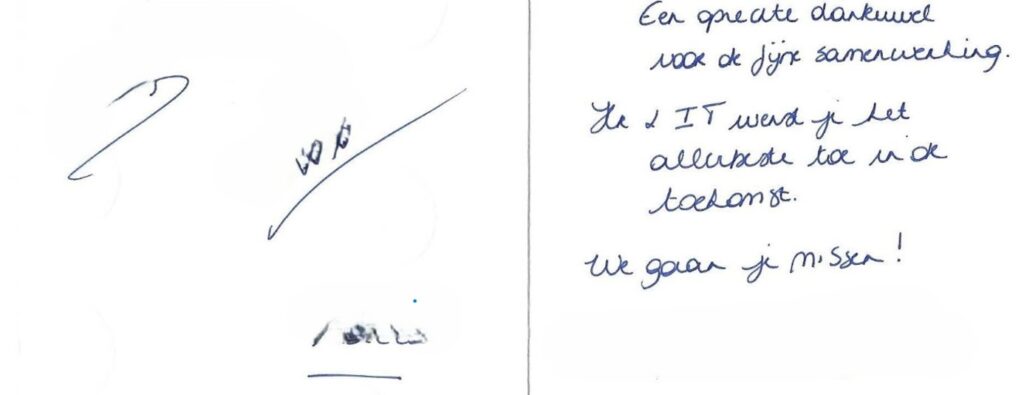 Een oprechte dankuwel
voor de fijne samenwerking.
HR & IT wenst je het
allerbeste toe in de
toekomst.
We gaan je missen!